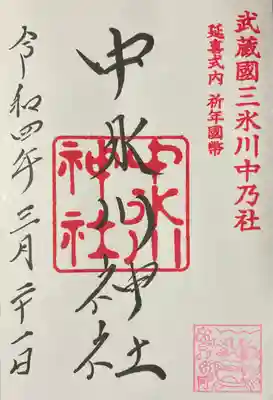 武蔵國三氷川中乃社
延喜式内 祈年國幣
中氷川神社
中氷川
神社
令和四年三月二十一日